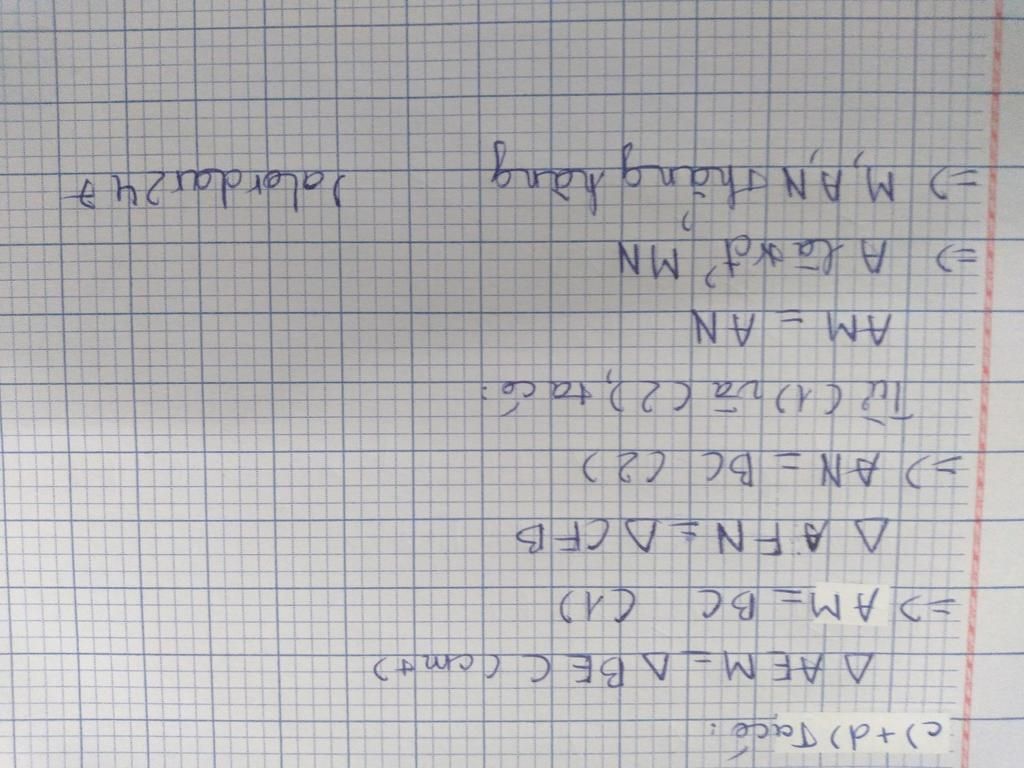 c)+d) Ta có:
Δ AEM = Δ BEC (cmt)
=> AM = BC (1)
Δ AFN = Δ CFB
=> AN = BC (2)
Từ (1) và (2), ta có:
AM = AN
=> A là MN
=> M, A, N thẳng hàng